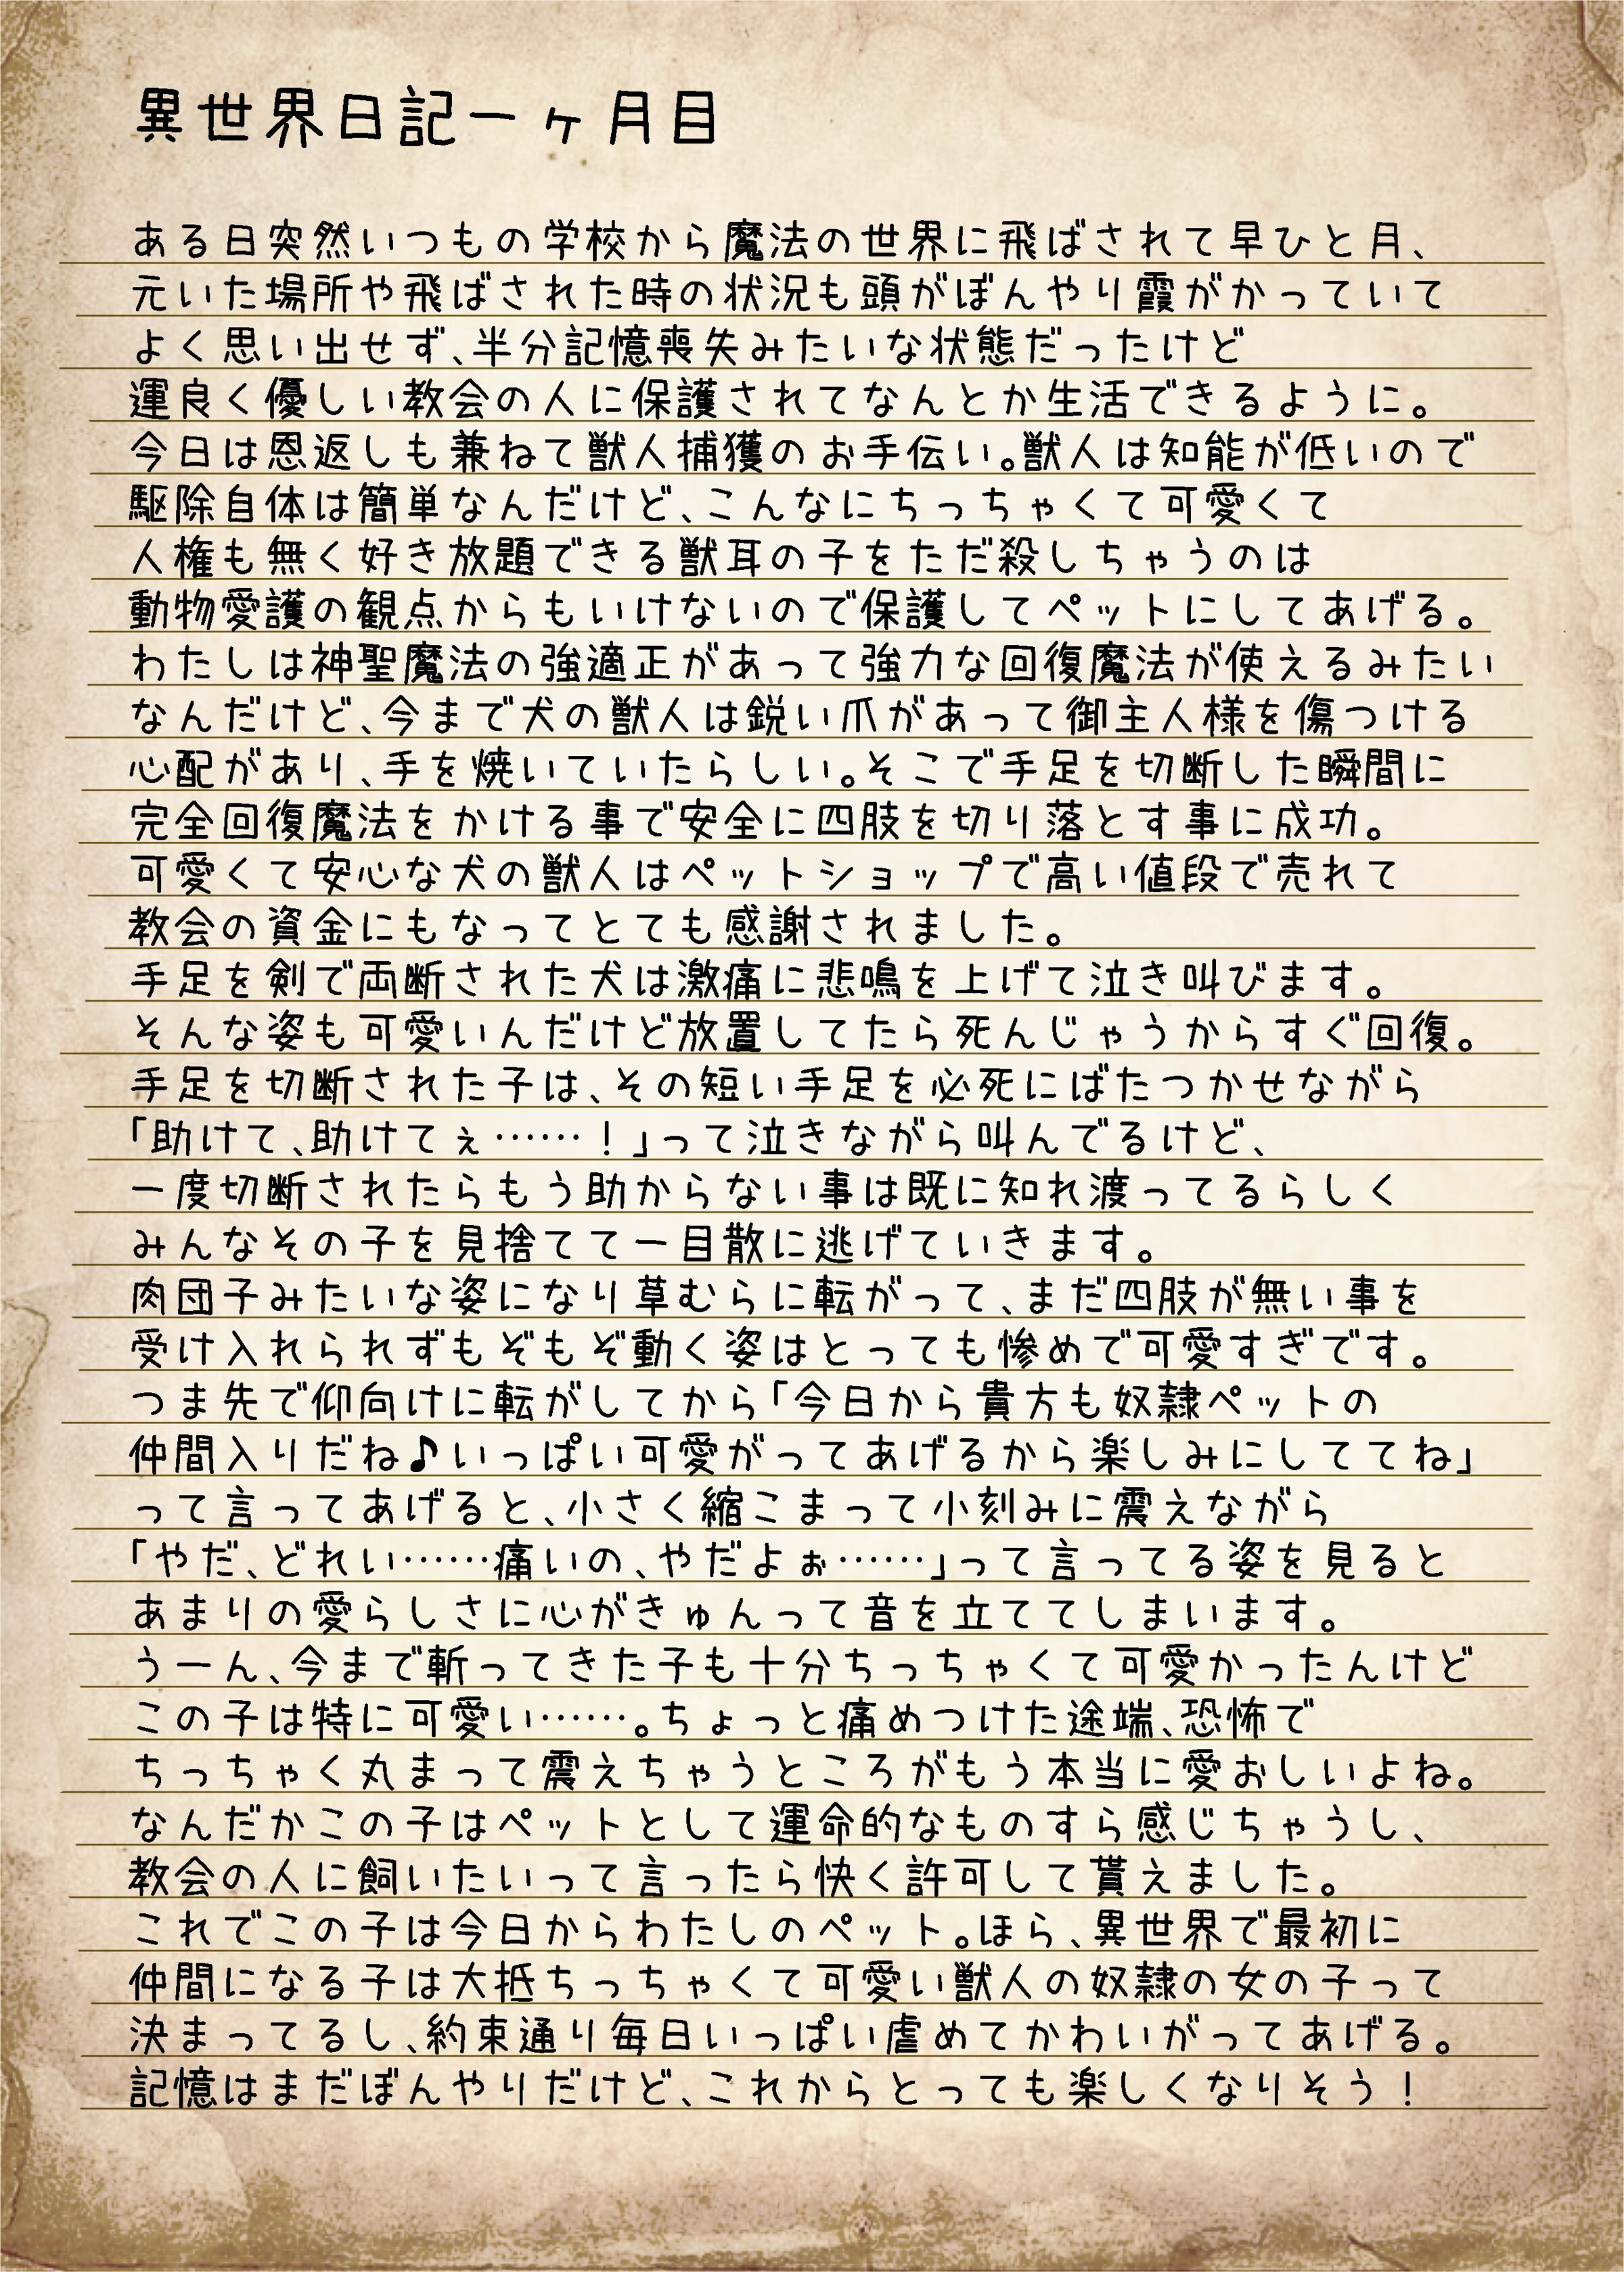 異世界日記一ヶ月目
ある日突然いつもの学校から魔法の世界に飛ばされて早ひと月、
元いた場所や飛ばされた時の状況も頭がぼんやり霞がかっていて
よく思い出せず、半分記憶喪失みたいな状態だったけど
運良く優しい教会の人に保護されてなんとか生活できるように。
今日は恩返しも兼ねて獣人捕獲のお手伝い。獣人は知能が低いので
駆除自体は簡単なんだけど、こんなにちっちゃくて可愛くて
人権も無く好き放題できる獣耳の子をただ殺しちゃうのは
動物愛護の観点からもいけないので保護してペットにしてあげる。
わたしは神聖魔法の強適正があって強力な回復魔法が使えるみたい
なんだけど、今まで犬の獣人は鋭い爪があって御主人様を傷つける
心配があり、手を焼いていたらしい。そこで手足を切断した瞬間に
完全回復魔法をかける事で安全に四肢を切り落とす事に成功。
可愛くて安心な犬の獣人はペットショップで高い値段で売れて
教会の資金にもなってとても感謝されました。
手足を剣で両断された犬は激痛に悲鳴を上げて泣き叫びます。
そんな姿も可愛いんだけど放置してたら死んじゃうからすぐ回復。
手足を切断された子は、その短い手足を必死にばたつかせながら
「助けて、助けてぇ……！」って泣きながら叫んでるけど、
一度切断されたらもう助からない事は既に知れ渡ってるらしく
みんなその子を見捨てて一目散に逃げていきます。
肉団子みたいな姿になり草むらに転がって、まだ四肢が無い事を
受け入れられずもぞもぞ動く姿はとっても惨めで可愛すぎです。
つま先で仰向けに転がしてから「今日から貴方も奴隷ペットの
仲間入りだね♪いっぱい可愛がってあげるから楽しみにしててね」
って言ってあげると、小さく縮こまって小刻みに震えながら
「やだ、どれい……痛いの、やだよぉ……」って言ってる姿を見ると
あまりの愛らしさに心がきゅんって音を立ててしまいます。
うーん、今まで斬ってきた子も十分ちっちゃくて可愛かったんけど
この子は特に可愛い……。ちょっと痛めつけた途端、恐怖で
ちっちゃく丸まって震えちゃうところがもう本当に愛おしいよね。
なんだかこの子はペットとして運命的なものすら感じちゃうし、
教会の人に飼いたいって言ったら快く許可して貰えました。
これでこの子は今日からわたしのペット。ほら、異世界で最初に
仲間になる子は大抵ちっちゃくて可愛い獣人の奴隷の女の子って
決まってるし、約束通り毎日いっぱい虐めてかわいがってあげる。
記憶はまだぼんやりだけど、これからとっても楽しくなりそう！